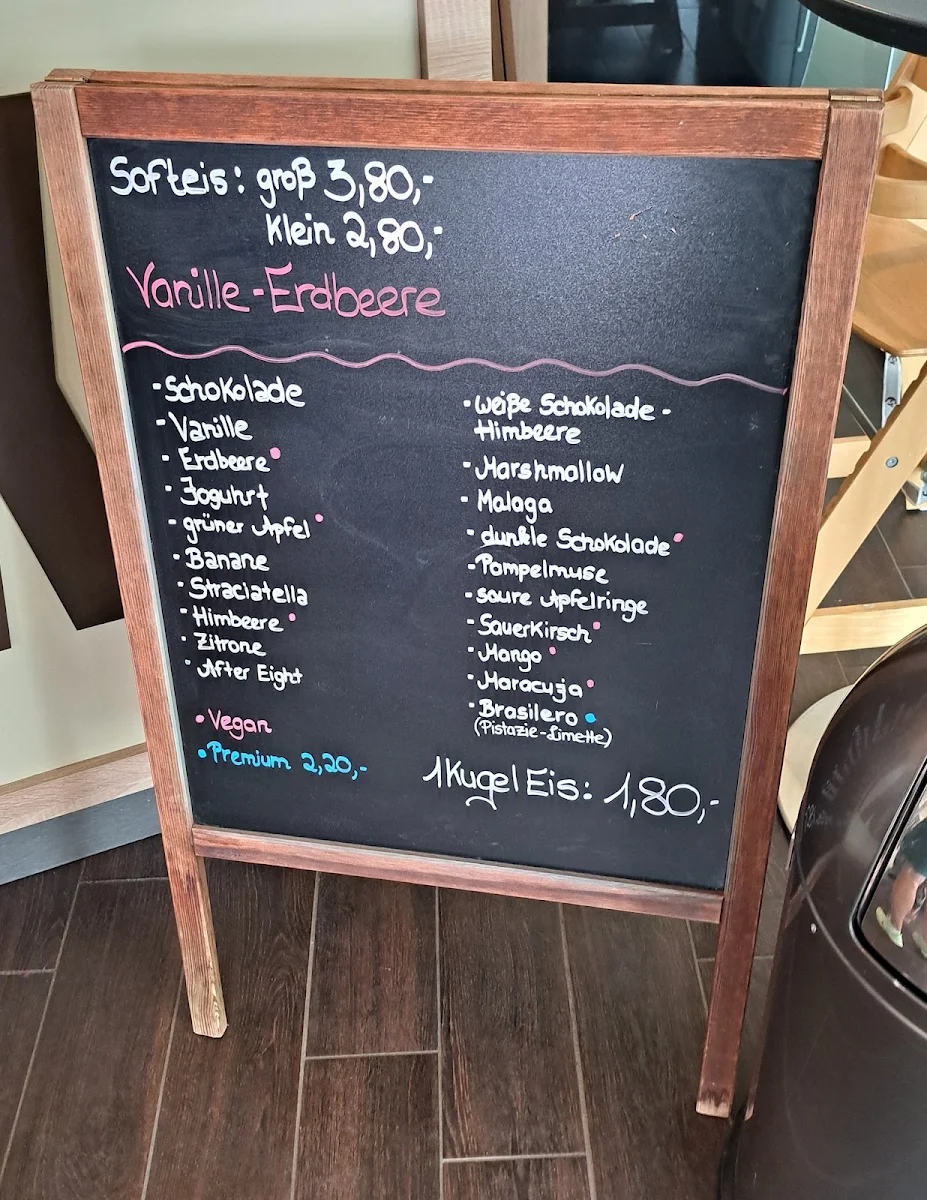 Softeis: groß 3,80,-
Klein 2,80,-
Vanille-Erdbeere
-Schokolade
-Vanille
- Erdbeere
- Joguhrt
- grüner Apfel
- Banane
- Straciatella
- Himbeere
- Zitrone
- After Eight
• Vegan
• Premium 2,20,-
- weiße Schokolade -
Himbeere
- Marshmallow
- Malaga
- dunkle Schokolade
- Pampelmuse
- saure Apfelringe
- Sauerkirsch
- Mango
- Maracuja
- Brasilero
(Pistazie-Limette)
1 Kugel Eis: 1,80,-